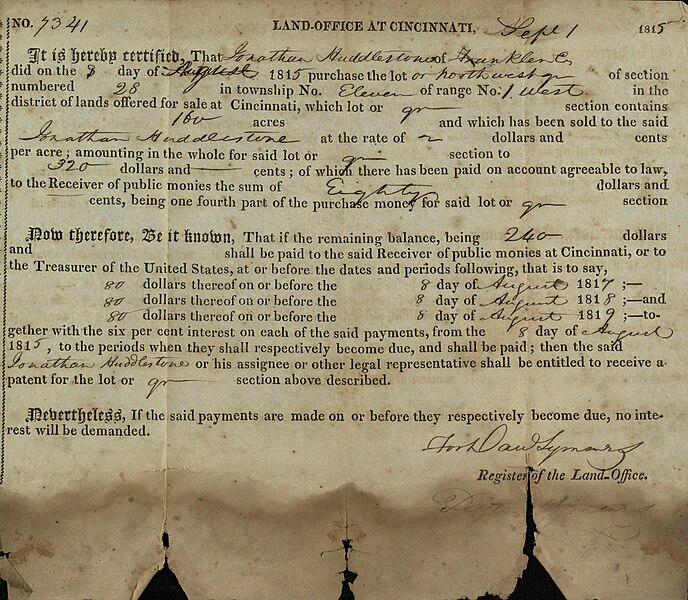 NO. 7341 LAND-OFFICE AT CINCINNATI, Sept 1 1815
It is hereby certified, That Jonathan Huddlestone of Franklin C.
did on the 8 day of August 1815 purchase the lot or north west qr of section
numbered 28 in township No. Eleven of range No. 1. West. in the
district of lands offered for sale at Cincinnati, which lot or qr section contains
160 acres and which has been sold to the said
Jonathan Huddlestone at the rate of 2 dollars and cents
per acre; amounting in the whole for said lot or qr section to
320 dollars and — cents; of which there has been paid on account agreeable to law,
to the Receiver of public monies the sum of Eighty dollars and
— cents, being one fourth part of the purchase money for said lot or qr section
Now therefore, Be it known, That if the remaining balance, being 240 dollars
and shall be paid to the said Receiver of public monies at Cincinnati, or to
the Treasurer of the United States, at or before the dates and periods following, that is to say,
80 dollars thereof on or before the 8 day of August 1817;—
80 dollars thereof on or before the 8 day of August 1818;—and
80 dollars thereof on or before the 8 day of August 1819;—to-
gether with the six per cent interest on each of the said payments, from the 8 day of August
1815, to the periods when they shall respectively become due, and shall be paid; then the said
Jonathan Huddlestone or his assignee or other legal representative shall be entitled to receive a
patent for the lot or qr section above described.
Nevertheless, If the said payments are made on or before they respectively become due, no inte-
rest will be demanded.
Symmes
Register of the Land-Office.